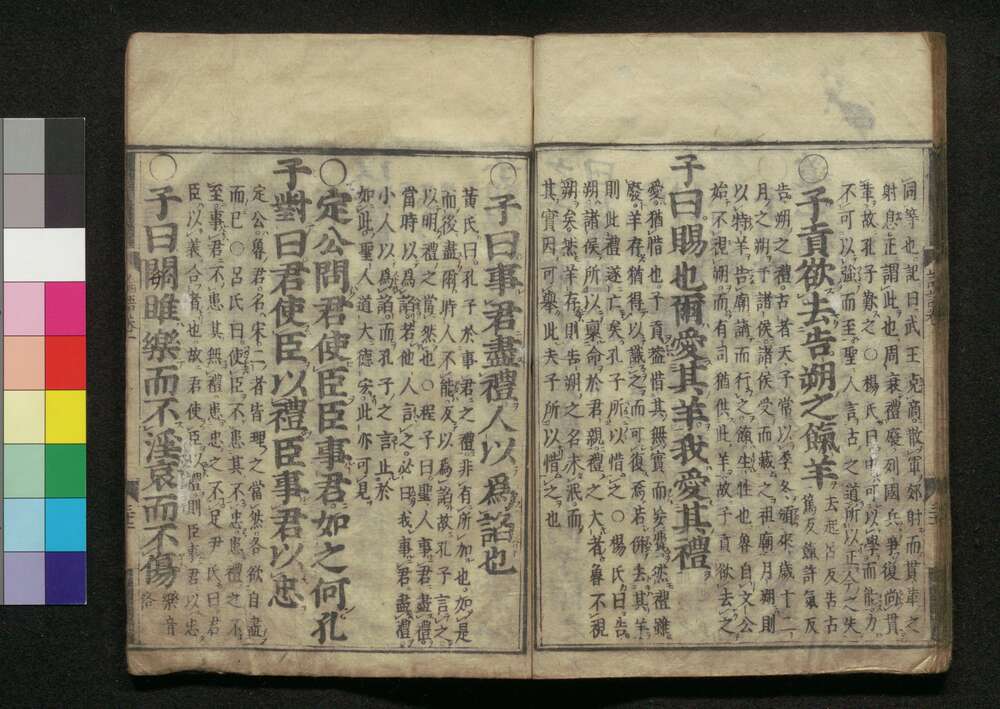 同等也記曰武王克商散軍郊射而貫革之
射息正謂此也周衰禮廢列國兵爭復尚貫
革故孔子歎之○楊氏曰中可以學而能力
不可以強而至聖人言古之道所以正今之失
子貢欲去告朔之餼羊 去起呂反告古
篤反餼許氣反
告朔之禮古者天子常以季冬頒來歲十二
月之朔于諸侯諸侯受而藏之祖廟月朔則
以特羊告廟請而行之餼生牲也魯自文公
始不視朔而有司猶供此羊故子貢欲去之
子曰賜也爾愛其羊我愛其禮
愛猶惜也子貢蓋惜其無實而妄費然禮雖
廢羊存猶得以識之而可復焉若併去其羊
則此禮遂亡矣孔子所以惜之○楊氏曰告
朔諸侯所以稟命於君親禮之大者魯不視
朔矣然羊存則告朔之名未泯而
其實因可舉此夫子所以惜之也
子曰事君盡禮人以爲諂也
黃氏曰孔子於事君之禮非有所加也如是
而後盡爾時人不能反以爲諂故孔子言之
以明禮之當然也○程子曰聖人事君盡禮
當時以爲諂若他人言之必曰我事君盡禮
小人以爲諂而孔子之言止於
如此聖人道大德宏此亦可見
○定公問君使臣臣事君如之何孔
子對曰君使臣以禮臣事君以忠
定公魯君名宋二者皆理之當然各欲自盡
而已○呂氏曰使臣不患其不忠患禮之不
至事君不患其無禮患忠之不足尹氏曰君
臣以義合者也故君使臣以禮則臣事君以忠
○子曰關雎樂而不淫哀而不傷 樂音
洛